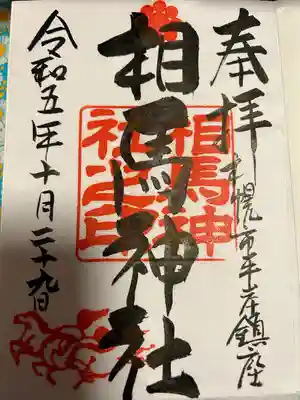 奉拝
札幌市平岸鎮座
相馬神社
相馬神
社之印
令和五年十月二十九日